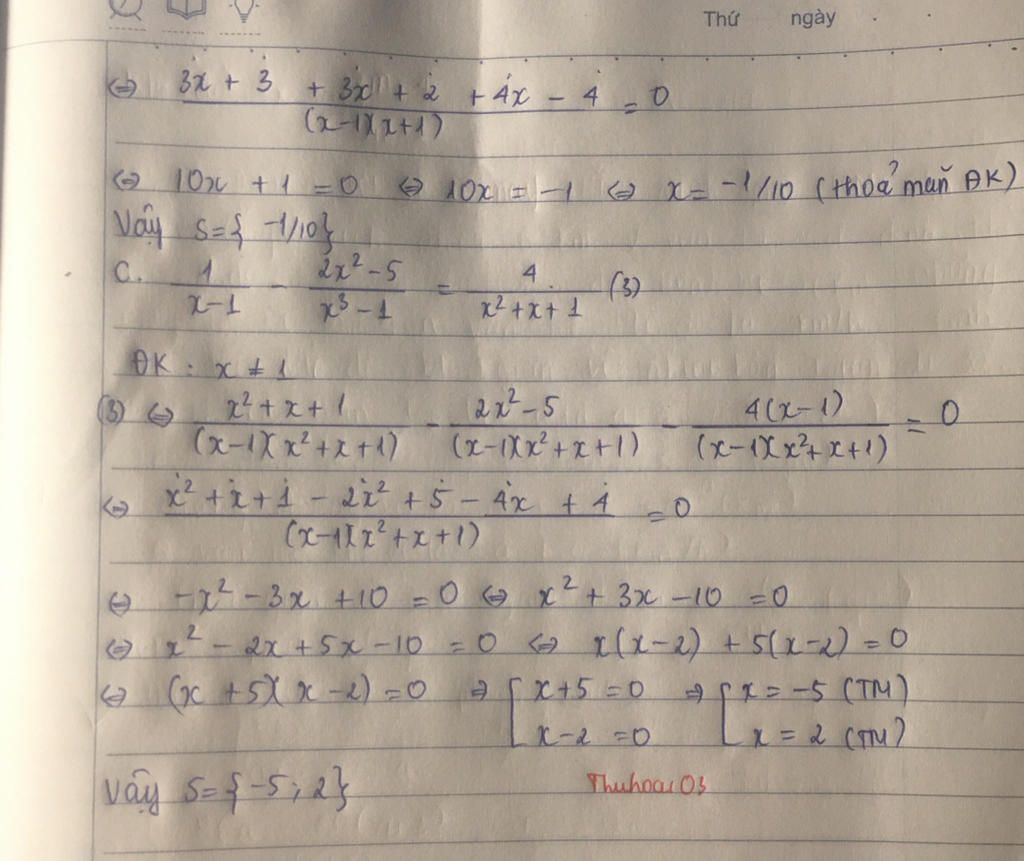 Thứ ngày
⇔ (3x + 3 + 3x + 2 + 4x - 4)/((x-1)(x+1)) = 0
⇔ 10x + 1 = 0 ⇔ 10x = -1 ⇔ x = -1/10 (thoả mãn ĐK)
Vậy S={ -1/10}
C. 1/(x-1) - (2x²-5)/(x³-1) = 4/(x²+x+1) (3)
ĐK : x ≠ 1
(3) ⇔ (x²+x+1)/((x-1)(x²+x+1)) - (2x²-5)/((x-1)(x²+x+1)) - 4(x-1)/((x-1)(x²+x+1)) = 0
⇔ (x²+x+1 - 2x² + 5 - 4x + 4)/((x-1)(x²+x+1)) = 0
⇔ -x² - 3x + 10 = 0 ⇔ x² + 3x - 10 = 0
⇔ x² - 2x + 5x - 10 = 0 ⇔ x(x-2) + 5(x-2) = 0
⇔ (x+5)(x-2) = 0 ⇒ [x+5 = 0 ⇒ [x = -5 (TM)
x-2 = 0 x = 2 (TM)
Vậy S={-5; 2}
Thuhoai03